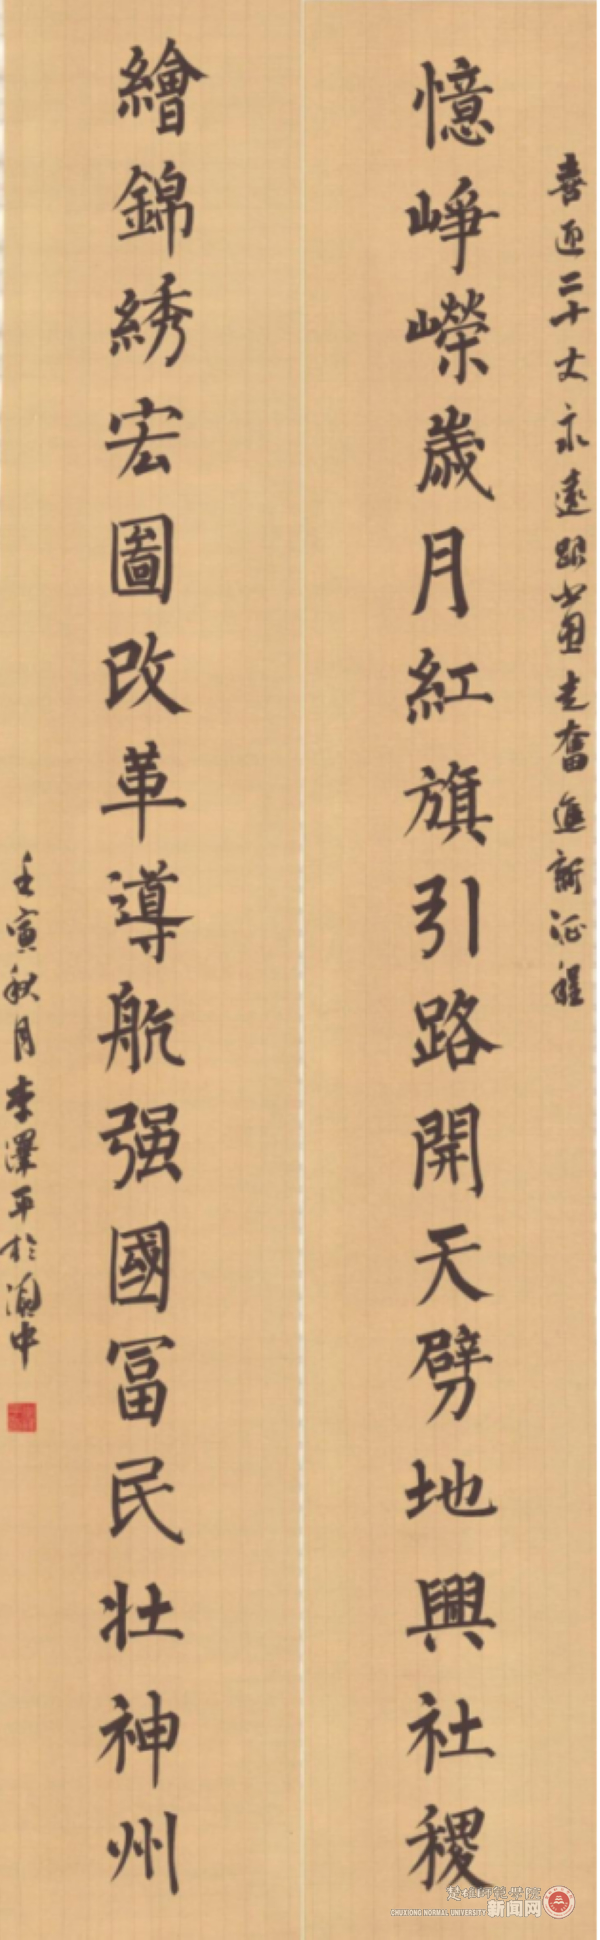 喜迎二十大永遠跟黨走奮進新征程
憶崢嶸歲月紅旗引路開天劈地興社稷
繪錦綉宏圖改革導航强國冨民壮神州
壬寅秋月李澤平於滇中
楚雄师范学院
CHUXIONG NORMAL UNIVERSITY 新闻网